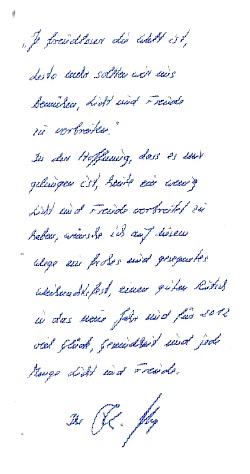 „Je freudloser die Welt ist,
desto mehr sollten wir uns
bemühen, Licht und Freude
zu verbreiten."
In der Hoffnung, dass es mir
gelungen ist, heute ein wenig
Licht und Freude verbreitet zu
haben, wünsche ich auf diesem
Wege ein frohes und gesegnetes
Weihnachtsfest, einen guten Rutsch
in das neue Jahr und für 2012
viel Glück, Gesundheit und jede
Menge Licht und Freude.
Ihr